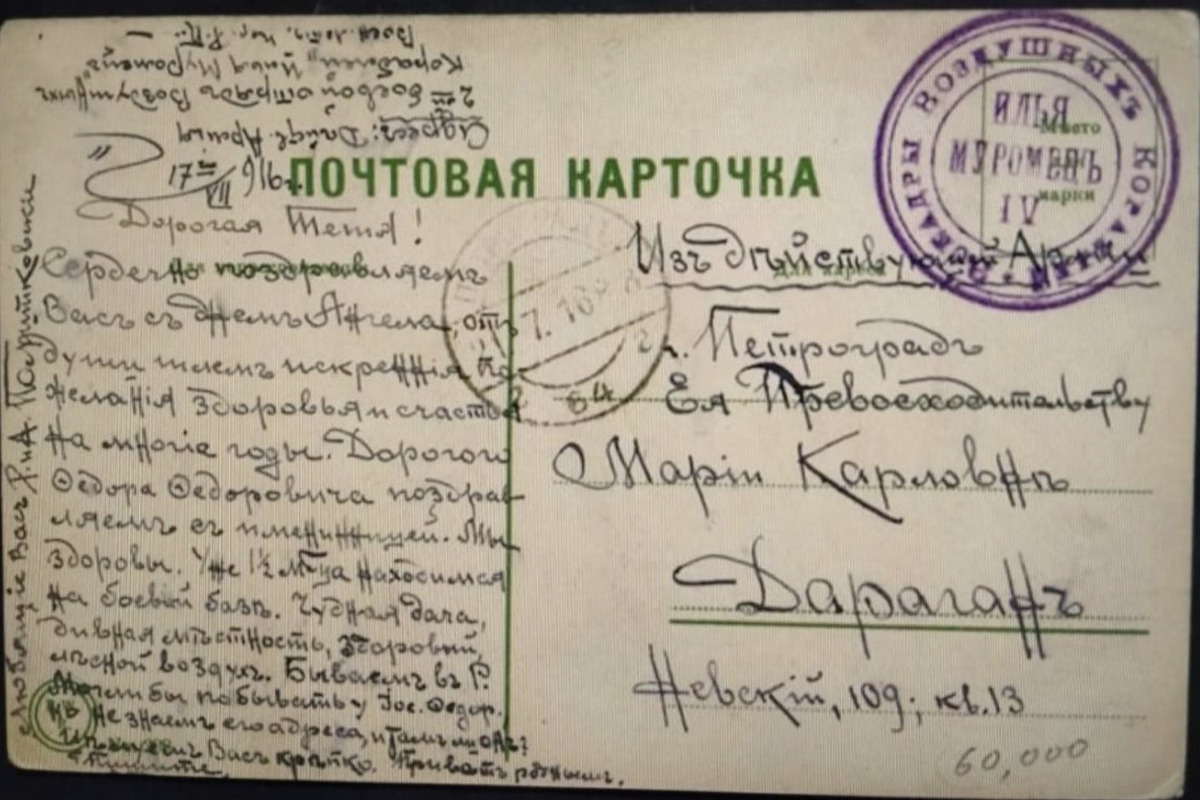 Адресъ: Дѣйств. Армія
2ой боевой отрядъ Воздушныхъ
Кораблей, „Илья Муромецъ"
Воен. летч. пор.
17го/VII 916 г.
ПОЧТОВАЯ КАРТОЧКА
ЭСКАДРЫ ВОЗДУШНЫХЪ КОРАБЛЕЙ
ИЛЬЯ
МУРОМЕЦЪ
IV
Мѣсто
марки
Дорогая Тетя!
Сердечно поздравляемъ
Васъ съ днемъ Ангела, отъ
души шлемъ искреннія по-
желанія здоровья и счастья
на многіе годы. Дорогого
Ѳедора Ѳедоровича поздрав-
ляемъ съ именинницей. Мы
здоровы. Уже 1½ м-ца находимся
на боевой базѣ. Чудная дача,
дивная мѣстность, здоровый,
лѣсной воздухъ. Бываемъ въ Р.
Могли бы побывать у Іос. Ѳедор.
но не знаемъ его адреса, и тамъ ли онъ?
Цѣлуемъ Васъ крѣпко. Привѣтъ роднымъ.
Пишите.
Любящіе Васъ
7.16
64
Изъ дѣйствующей Арміи
г. Петроградъ
Ея Превосходительству
Маріи Карловнѣ
Дараганъ
Невскій, 109; кв. 13
60,000